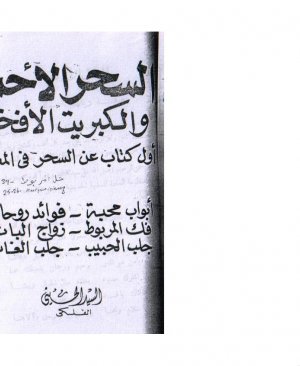 السحر الأحـ
والكبريت الأفخـ
أول كتاب عن السحر فى المـ
أبواب محبة - فوائد روحا
فك المربوط - زواج البا
جلب الحبيب - جلب الغا
السيد الحسينى
الفلكى